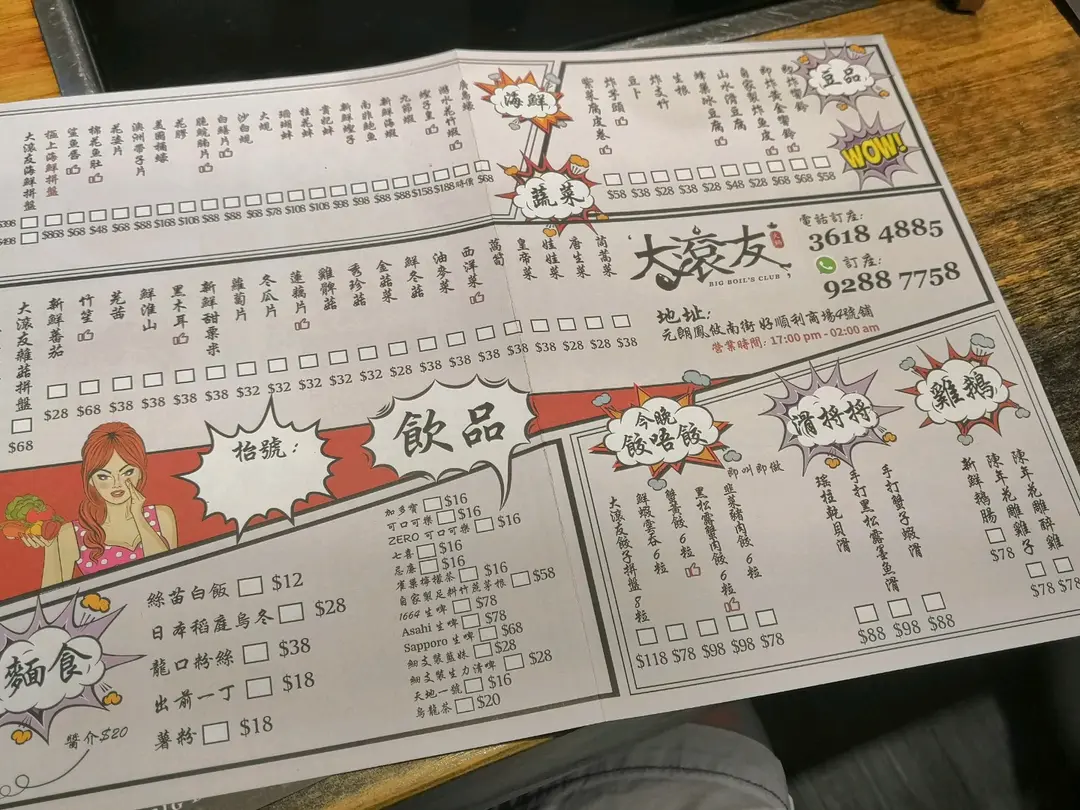 海鮮
廣島蠔
游水花竹蝦
蟶子皇
九節蝦
新鮮海蝦
南非鮑魚
新鮮蟶子
貴妃蚌
桂花蚌
珊瑚蚌
大蜆
沙白蜆
白鱔片
脆鯇腩片
花膠
美國桶蠔
澳洲帶子片
花姿片
棉花魚肚
筐魚唇
極上海鮮拼盤
大滾友海鮮拼盤
$398
$498
$868 $68 $48 $68 $88 $168 $108 $88 $88 $68 $78 $108 $108 $98 $98 $88 $88 $158 $188 時價 $68
豆品
WOW!
即炸響鈴
即炸黃金響鈴
自家製炸魚皮
山水滑豆腐
蜂巢冰豆腐
生根
炸支竹
豆卜
炸芋頭
紫菜腐皮卷
$58 $38 $28 $38 $28 $48 $28 $68 $68 $58
蔬菜
茼蒿菜
唐生菜
娃娃菜
皇帝菜
萵筍
西洋菜
油麥菜
鮮冬菇
金菇菜
秀珍菇
雞髀菇
蓮藕片
冬瓜片
蘿蔔片
新鮮甜粟米
黑木耳
鮮淮山
芫茜
竹笙
新鮮蕃茄
大滾友雜菇拼盤
$68
$28 $68 $38 $38 $38 $38 $32 $32 $32 $32 $32 $28 $38 $38 $38 $38 $38 $28 $28 $38
大滾友
火鍋
BIG BOIL'S CLUB
電話訂座:
3618 4885
訂座:
9288 7758
地址:
元朗鳳攸南街好順利商場4號舖
營業時間: 17:00 pm - 02:00 am
枱號:
飲品
加多寶 $16
可口可樂 $16
ZERO 可口可樂 $16
七喜 $16
忌廉 $16
雀巢檸檬茶 $16
自家製足料竹蔗茅根 $58
1664 生啤 $78
Asahi 生啤 $78
Sapporo 生啤 $68
細支裝藍妹 $28
細支裝生力清啤 $28
天地一號 $16
烏龍茶 $20
麵食
醬介$20
絲苗白飯 $12
日本稻庭烏冬 $28
龍口粉絲 $38
出前一丁 $18
薯粉 $18
今晚
餃唔餃
即叫即做
韮菜豬肉餃 6粒
黑松露蟹肉餃 6粒
蟹黃餃 6粒
鮮蝦雲吞 6粒
大滾友餃子拼盤 8粒
$118 $78 $98 $98 $78
滑捋捋
手打蟹子蝦滑
手打黑松露墨魚滑
瑤柱乾貝滑
$88 $98 $88
雞鵝
陳年花雕醉雞
陳年花雕雞子
新鮮鵝腸
$78
$78 $78